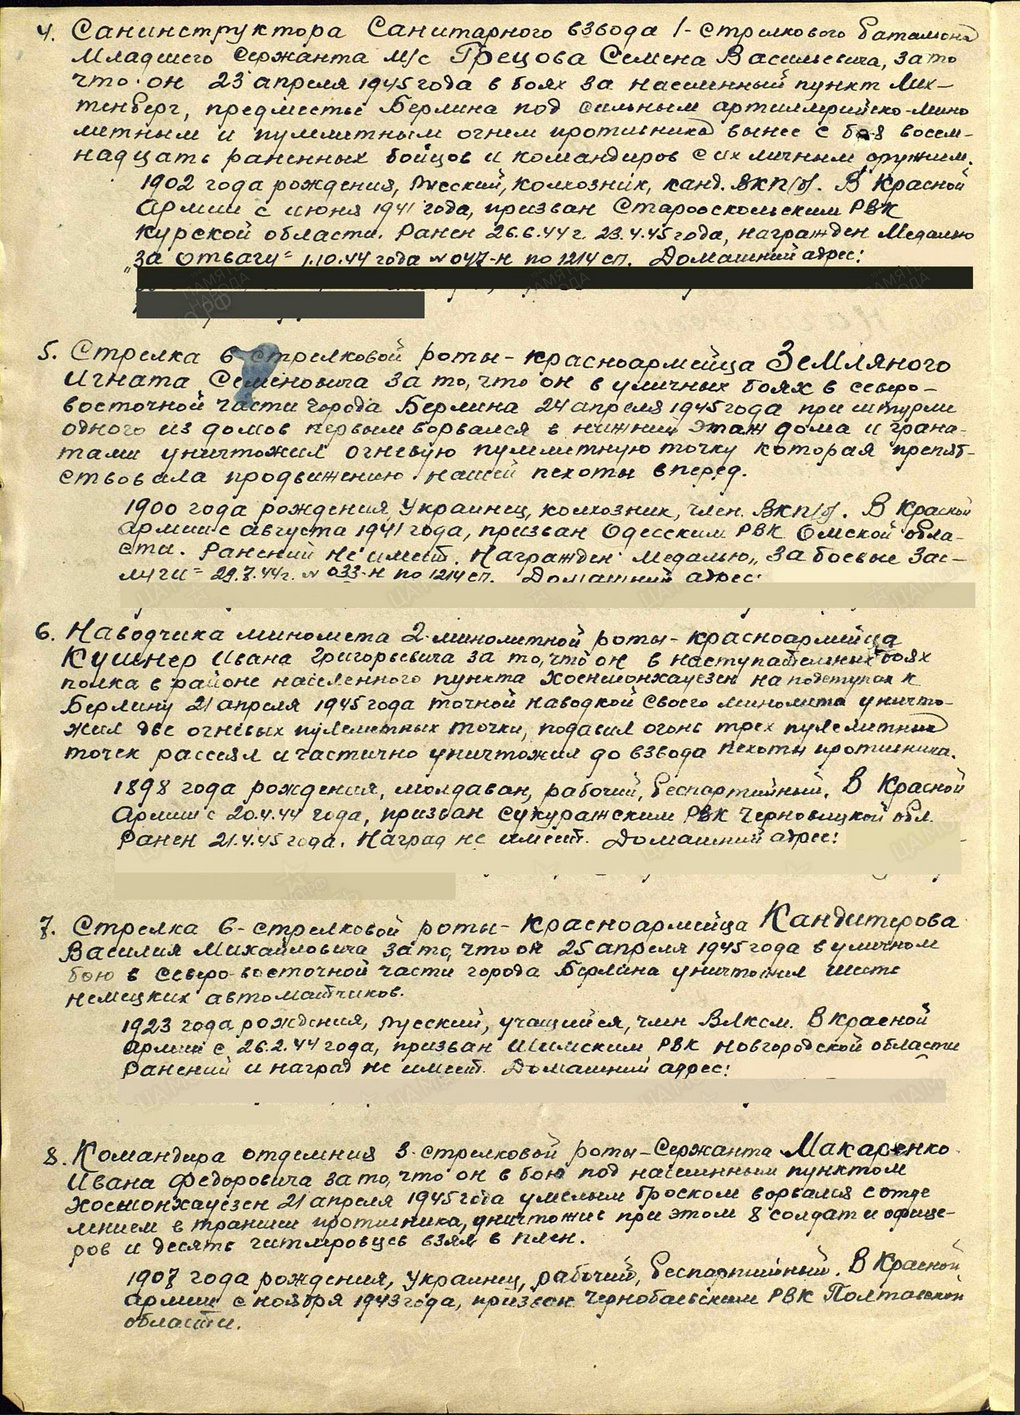 4. Санинструктора Санитарного взвода 1-стрелкового батальона
Младшего Сержанта м/с Грецова Семена Васильевича, за то
что он 23 апреля 1945 года в боях за населенный пункт Лих-
тенберг, предместье Берлина под сильным артиллерийско-мино
метным и пулеметным огнем противника вынес с боя восем-
надцать раненных бойцов и командиров с их личным оружием.
1902 года рождения, Русский, колхозник, канд. ВКП/б/. В Красной
Армии с июня 1941 года, призван Старооскольским РВК
Курской области. Ранен 26.6.44 г. 23.4.45 года, награжден Медалью
„За отвагу" 1.10.44 года № 047-н по 1214 сп. Домашний адрес:
5. Стрелка 6 стрелковой роты - красноармейца Земляного
Игната Семеновича за то, что он в уличных боях в северо-
восточной части города Берлина 24 апреля 1945 года при штурме
одного из домов первым ворвался в нижний этаж дома и грана-
тами уничтожил огневую пулеметную точку которая препят-
ствовала продвижению нашей пехоты вперед.
1900 года рождения, Украинец, колхозник, член. ВКП/б/. В Красной
Армии с августа 1941 года, призван Одесским РВК Омской обла-
сти. Ранений не имеет. Награжден Медалью „За боевые Зас-
луги" 29.7.44 г. № 033-н по 1214 сп. Домашний адрес:
6. Наводчика миномета 2-минометной роты - красноармейца
Кушнер Ивана Григорьевича за то, что он в наступательных боях
полка в районе населенного пункта Хоеншонхаузен на подступах к
Берлину 21 апреля 1945 года точной наводкой своего миномета уничто-
жил две огневых пулеметных точки, подавил огонь трех пулеметных
точек рассеял и частично уничтожил до взвода пехоты противника.
1898 года рождения, молдаван, рабочий, беспартийный. В Красной
Армии с 20.4.44 года, призван Сукурянским РВК Черновицкой обл.
Ранен 21.4.45 года. Наград не имеет. Домашний адрес:
7. Стрелка 6-стрелковой роты - Красноармейца Кандитерова
Василия Михайловича за то, что он 25 апреля 1945 года в уличном
бою в северо-восточной части города Берлина уничтожил шесть
немецких автоматчиков.
1923 года рождения, Русский, учащийся, член ВЛКСМ. В Красной
Армии с 26.2.44 года, призван Шимским РВК Новгородской области
Ранений и наград не имеет. Домашний адрес:
8. Командира отделения 3-стрелковой роты - Сержанта Макаренко
Ивана Федоровича за то, что он в бою под населенным пунктом
Хоешонхаузен 21 апреля 1945 года умелым броском ворвался с отде
лением в траншеи противника, уничтожив при этом 8 солдат и офице-
ров и десять гитлеровцев взял в плен.
1907 года рождения, Украинец, рабочий, беспартийный. В Красной
Армии с ноября 1943 года, призван Чернобаевским РВК Полтавской
области.